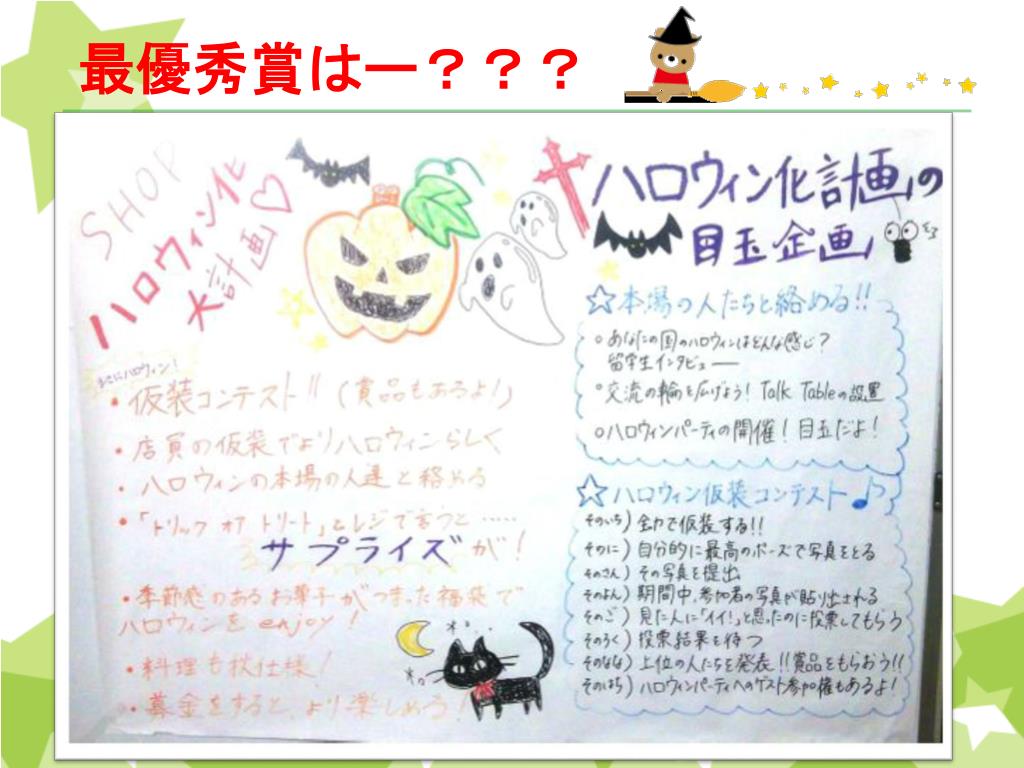 最優秀賞はー？？？
SHOP
ハロウィン化
大計画♡
まさにハロウィン！
・仮装コンテスト!!（賞品もあるよ!）
・店員の仮装でよりハロウィンらしく
・ハロウィンの本場の人達と絡める
・「トリック オア トリート」とレジで言うと……
サプライズが！
・季節感のあるお菓子がつまった福袋で
ハロウィンを enjoy！
・料理も秋仕様！
・募金をすると、より楽しめる！
ハロウィン化計画の
目玉企画
☆本場の人たちと絡める!!
○あなたの国のハロウィンはどんな感じ？
留学生インタビュー
○交流の輪を広げよう！Talk Tableの設置
○ハロウィンパーティの開催！目玉だよ！
☆ハロウィン仮装コンテスト♪
そのいち）全力で仮装する!!
そのに）自分的に最高のポーズで写真をとる
そのさん）その写真を提出
そのよん）期間中、参加者の写真が貼り出される
そのご）見た人に「イイ!」と思ったのに投票してもらう
そのろく）投票結果を待つ
そのなな）上位の人たちを発表!!賞品をもらおう!!
そのはち）ハロウィンパーティへのゲスト参加権もあるよ！